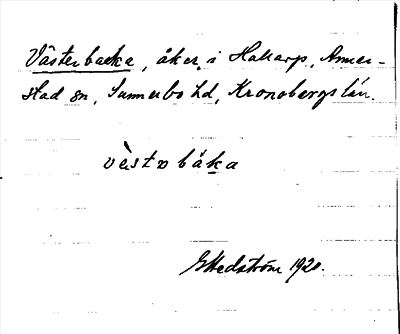 Västerbacka, åker i Hallarp, Anner-
stad sn, Sunnerbo hd, Kronobergs län.
vèstɒ båka
G Hedström 1920.